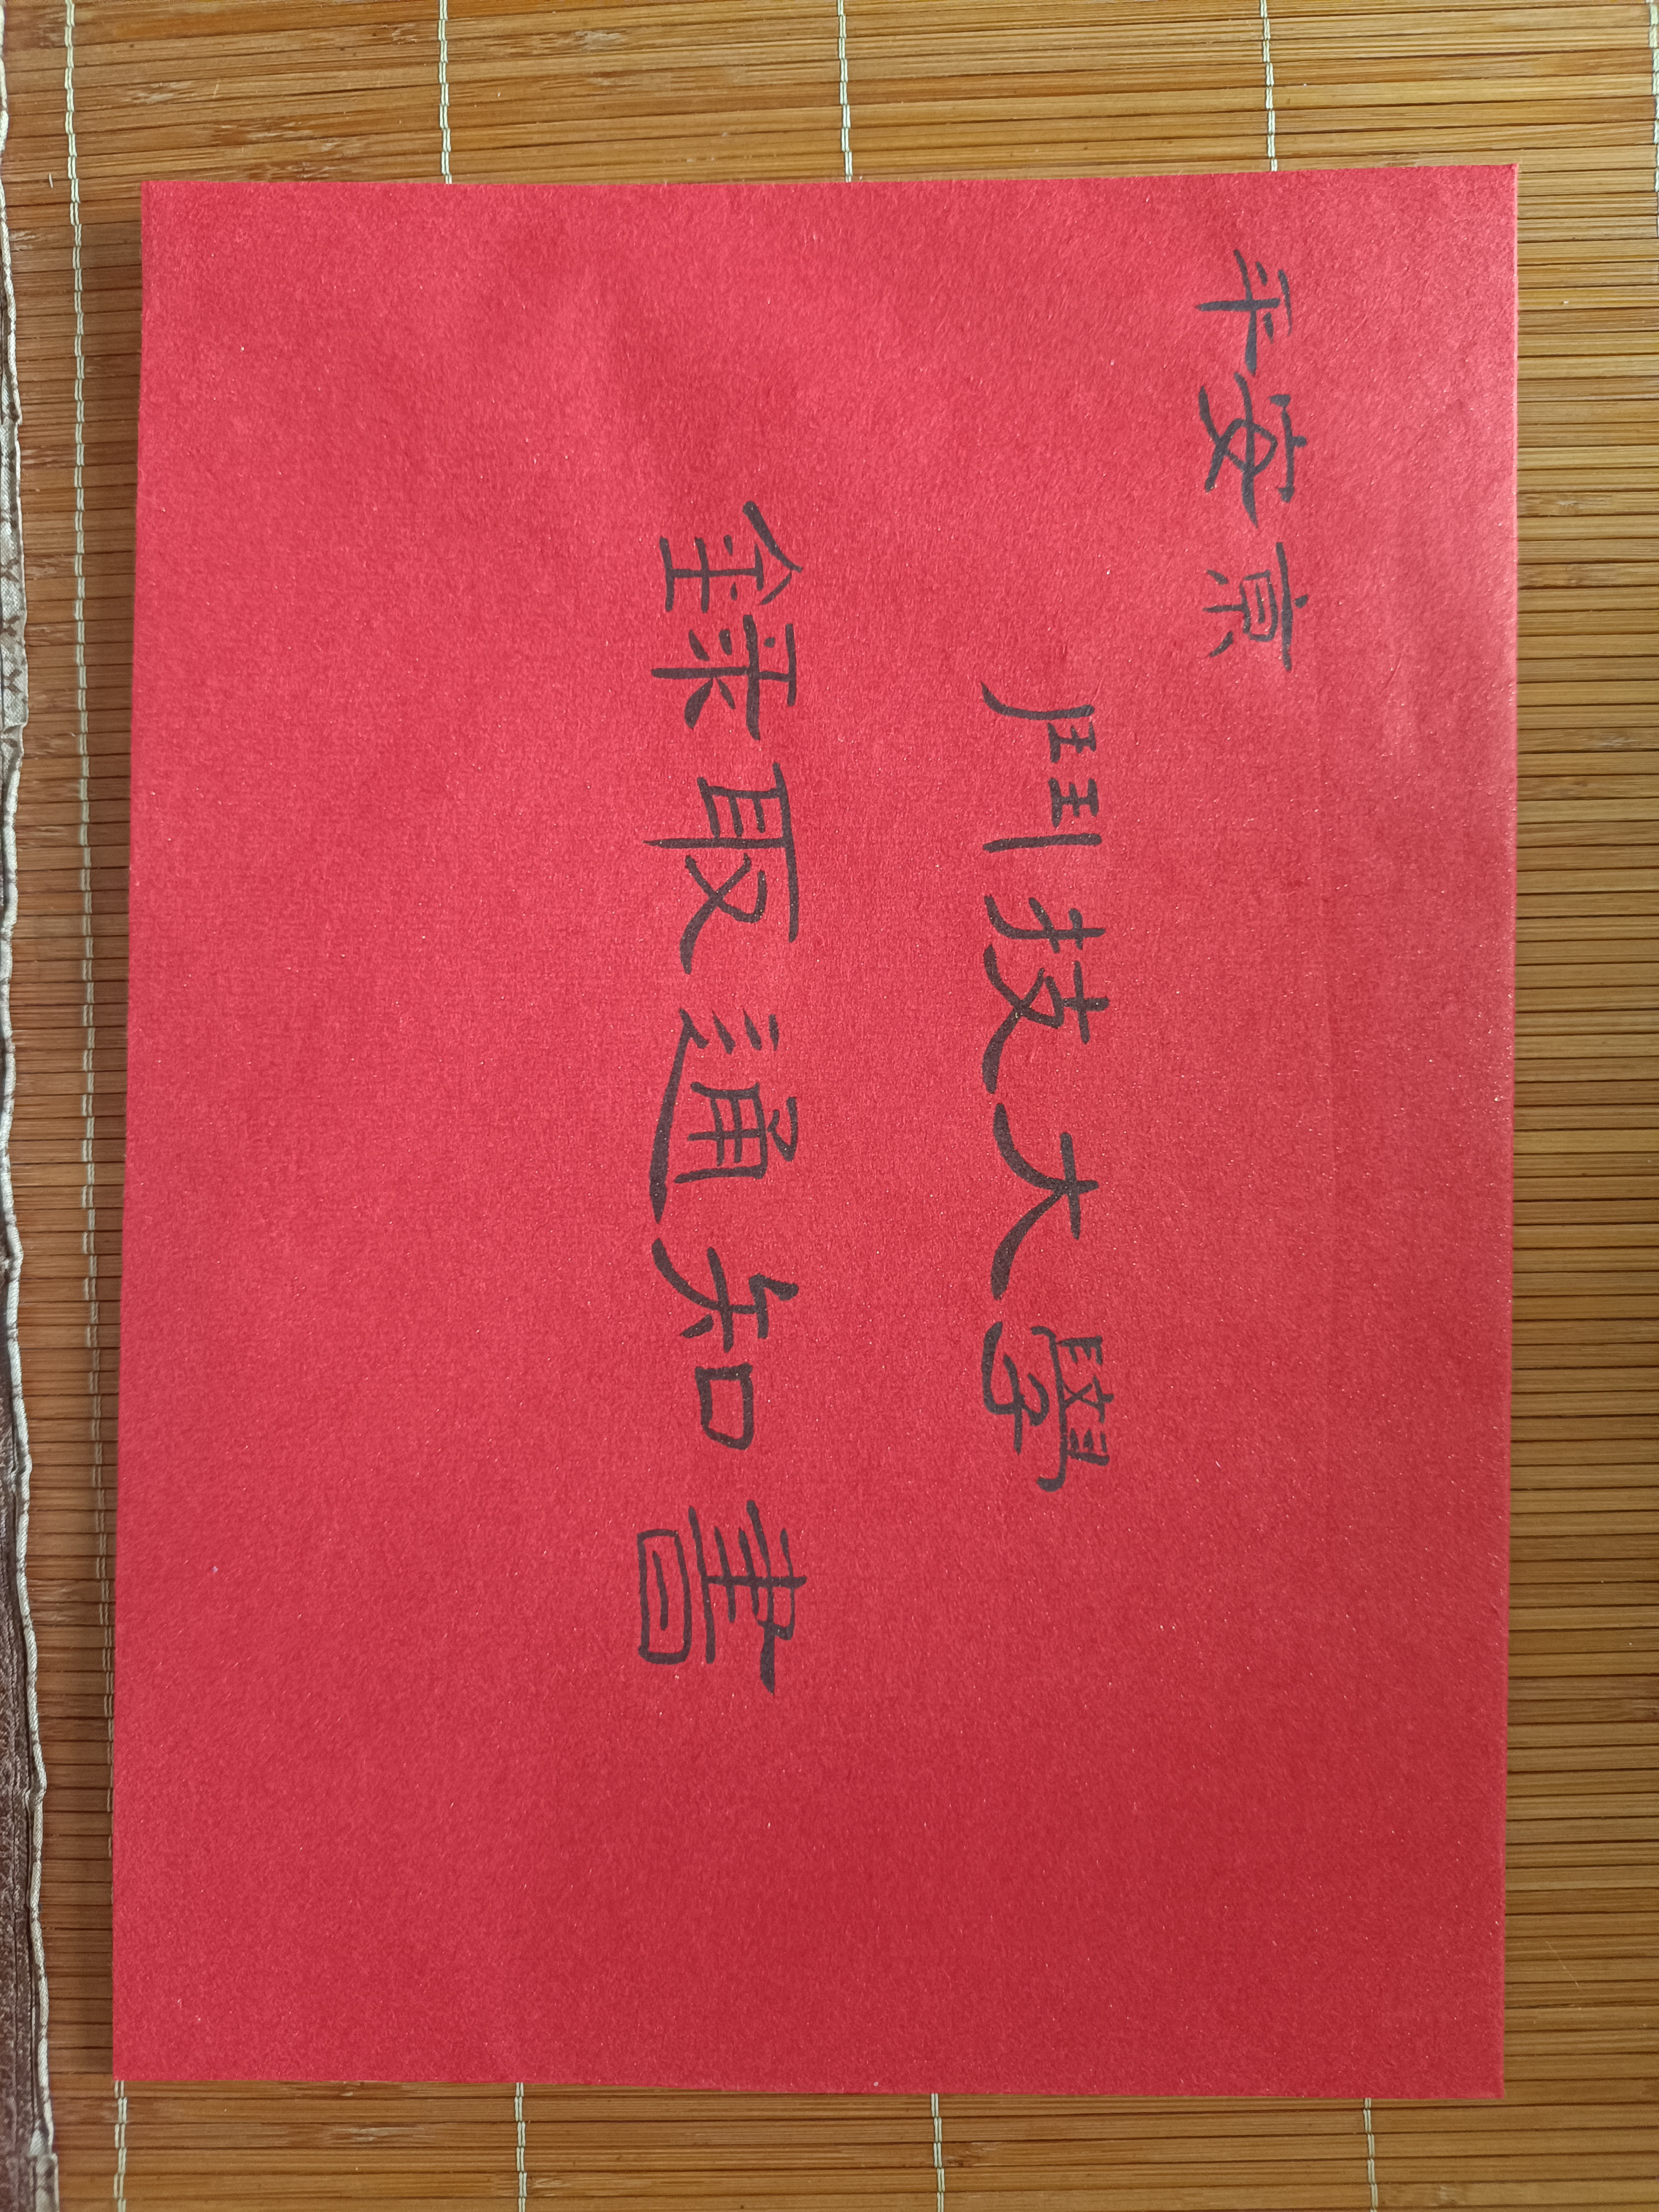 平安京
鬥技大學
錄取通知書